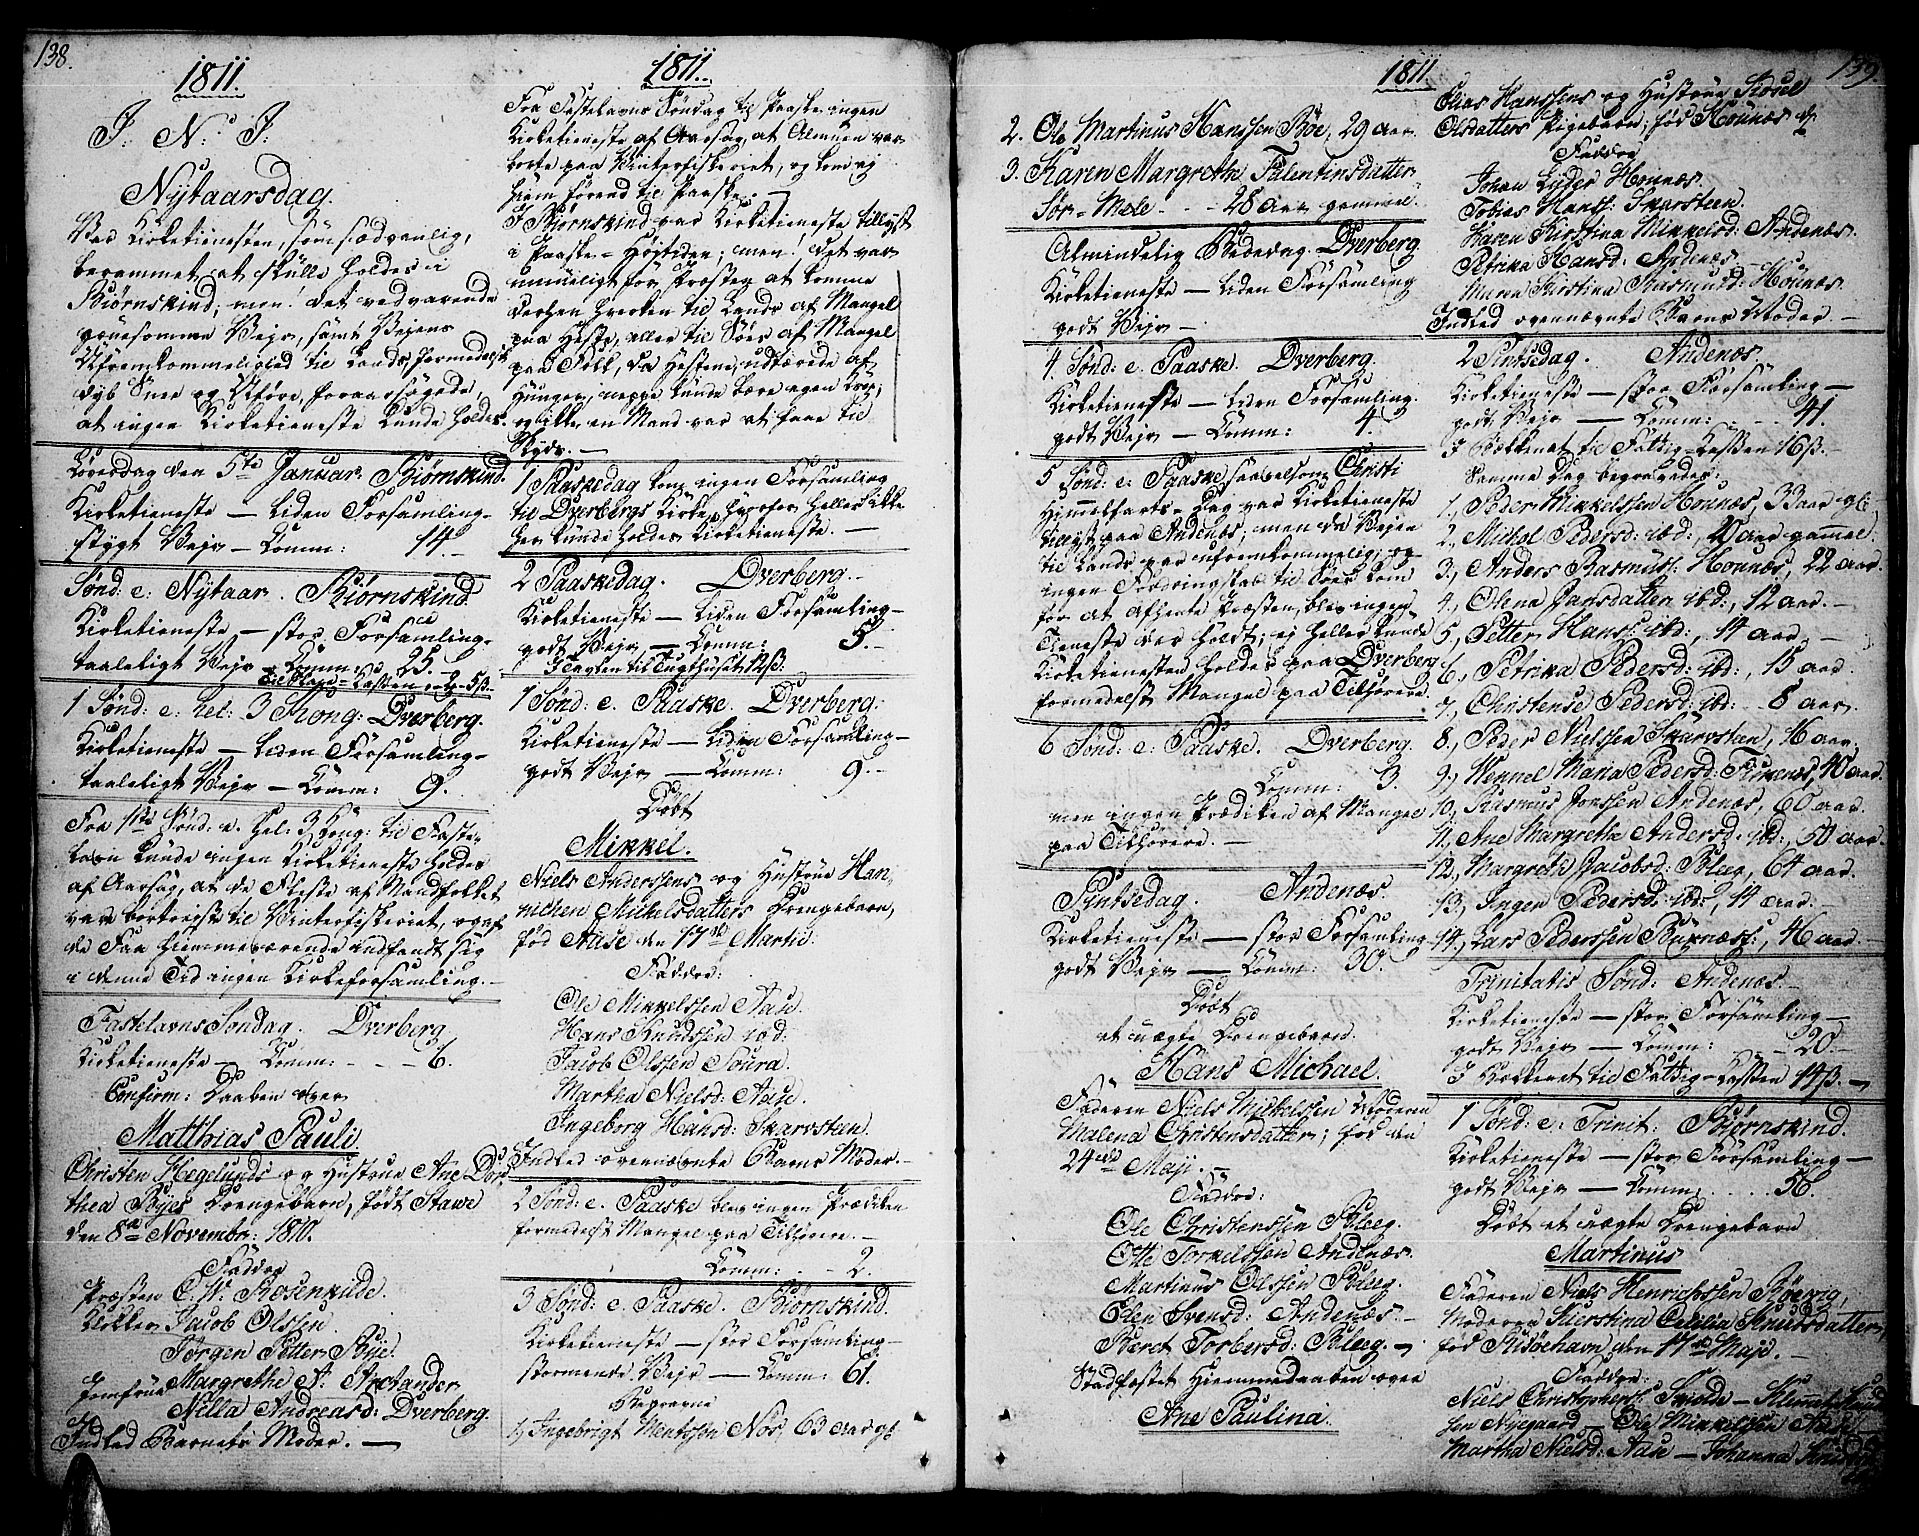 138.
1811.
J: N: J:
Nytaarsdag.
Var Kirketienesten, som sædvanlig,
berammet at skulle holdes i
Biørnskind; men! det vedvarende
gruesomme Vejr, samt Vejens
Ufremkommelighed til Lands, formedelst
dyb Snee og Uføre, foraarsagede
at ingen Kirketieneste kunde holdes.
Løverdag den 5te Januar. Biørnskind.
Kirketieneste — liden Forsamling.
stygt Vejr — Comm: 14.
Sønd: e: Nytaar. Biørnskind.
Kirketieneste — stor Forsamling.
taaleligt Vejr — Comm: 25.
1 Sønd: e: hel: 3 Kong: Dverberg.
Kirketieneste — liden Forsamling —
taaleligt Vejr — Comm: 9.
Fra 1ste Sønd. e. hel: 3 Kong: til Faste-
lavn kunde ingen Kirketieneste holdes
af Aarsag, at de Fleste af Mandfolket
vare bortreiste til Vinterfiskeriet, og af
de Faa hiemmeværende indfandt sig
i denne Tid ingen Kirkeforsamling. —
Fastelavns Søndag. Dverberg.
Kirketieneste — Comm: - - - 6.
Confirm: Daaben over
Matthias Pauli.
Christen Hegelunds og Hustrue Ane Dor
thea Byes Drengebarn, født Stawe
den 8de Novembr: 1810.
Faddre
Præsten C. W. Rosenkilde.
Klokker Jacob Olssen.
Jørgen Petter Bye.
Jomfrue Margrethe A: Arctander
Nilla Andreasd: Dverberg.
Indled Barnets Moder. —
1811.
Fra Fastelavns Søndag til Paaske ingen
Kirketieneste af Aarsag, at Almuen var
borte paa Vinterfiskeriet, og kom ej
hiem førend til Paaske. —
I Biørnskind var Kirketieneste tillyst
i Paaske-Høitiden; men! det var
umueligt for Præsten at komme
derhen hverken til Lands af Mangel
paa Heste, eller til Søes af Mangel
paa Folk, da Hestene, udtærede af
Hunger, neppe kunde bære egen Krop;
og ikke en Mand var at faae til
Skyds. —
1 Paaskedag kom ingen Forsamling
til Dverbergs Kirke, hvorfor heller ikke
her kunde holdes Kirketieneste. —
2 Paaskedag. Dverberg. —
Kirketieneste — liden Forsamling —
godt Vejr — Comm: 5. —
I Tavlen til Tugthuset 12 ß.
1 Sønd: e. Paaske. Dverberg:
Kirketieneste — liden Forsamling —
godt Vejr — Comm: 9. —
Døbt
Mikkel.
Niels Anderssens og Hustrue Han-
nichen Mickelsdatters Drengebarn,
fød Aase den 17de Martii.
Faddre:
Ole Mikkelssen Aase.
Hans Knudssen ibd:
Jacob Olssen Soura.
Martha Nielsd: Aase.
Ingeborg Hansd: Skarvstan.
Indled ovennævnte Barns Moder. —
2 Sønd: e. Paaske blev ingen Prædiken
formedelst Mangel paa Tilhørere. —
Comm: - - 2.
3 Sønd: e. Paaske. Biørnskind.
Kirketieneste — stor Forsamling —
stormende Vejr — Comm: 61.
Begravne
1, Ingebrigt Mentssøn Nøs, 63 aar gl:
1811.
2. Ole Martinus Hanssen Bøe, 29 aar
3. Karen Margrethe Falentinsdatter
Sør-Mele. - - 28 aar gammel.
Almindelig Bededag. Dverberg
Kirketieneste — liden Forsamling
godt Vejr —
4 Sønd: e. Paaske. Dverberg.
Kirketieneste — liden Forsamling.
godt Vejr — Comm: 4.
5 Sønd: e: Paaske saavelsom Christi
Himmelfarts-Dag var Kirketieneste
tillyst paa Andenæs; men da Vejen
til Lands var ufremkommelig, og
ingen Fordringskab til Søes kom
for at afhente Præsten, blev ingen
Tieneste der holdt; ej heller kunde
Kirketienesten holdes paa Dverberg
formedelst Mangel paa Tilhørere.
6 Sønd: e: Paaske. Dverberg.
Comm: 3.
men ingen Prædiken af Mangel
paa Tilhørere. —
Pintsedag. Andenæs.
Kirketieneste — stor Forsamling
godt Vejr — Comm: 30.
Døbt
et uægte Drengebarn.
Hans Michael.
Faderen Niels Mickelssen Moderen
Malena Christensdatter; fød den
24de Maji. —
Faddre:
Ole Christenssen Bleeg.
Otte Torkelssen Andenæs.
Martinus Olssen Bleeg.
Elen Svensd: Andenæs. —
Beret Torbersd: Bleeg. —
Stadfæstet Hiemmedaaben over
Ane Paulina.
139.
Elias Hanssens og Hustrue Kosel
Olsdatters Pigebarn; fød Hounæs d
Faddre
Johan Lyder Hounæs.
Tobias Hanss: Skarsteen.
Karen Kirstina Mikkelsd: Andenæs.
Petrika Hansd: Andenæs —
Maren Kirstina Rasmusd: Hounæs.
Indled ovennævnte Barns Moder. —
2 Pintsedag. Andenæs.
Kirketieneste — stor Forsamling —
godt Vejr — Comm: - - - 41.
I Bækkenet til Fattig-Kassen 16 ß.
Samme Dag begravedes:
1., Peder Mikkelssen Hounæs, 33 aar gl:
2., Mickel Pedersd: ibd:, 20 aar gammel.
3., Anders Rasmuss: Hounæs, 22 aar.
4., Olena Jansdatter ibd:, 12 aar. —
5., Petter Hanss: ibd:, 14 aar. —
6., Petrika Pedersd: ibd:, 15 aar.
7., Christense Pedersd: ibd: - 8 aar.
8., Peder Nielssen Skarvstan, 16 aar,
9., Wennel Maria Pedersd: Fiskenæs, 40 aar.
10., Rasmus Jonssen Andenæs, 60 aar.
11., Ane Margretha Andersd: ibd:, 50 aar.
12., Margrethe Jacobsd: Bleeg, 64 aar.
13., Ingen Pedersd: ibd:, 14 aar. —
14., Lars Pederssen Burnæss:, 46 aar. —
Trinitatis Sønd: Andenæs. —
Kirketieneste — stor Forsamling —
godt Vejr — Comm: — 20. —
I Bækkenet til Fattig-Kassen 14 ß. —
1 Sønd: e: Trinit: Biørnskind.
Kirketieneste — stor Forsamling —
godt Vejr — Comm: - - - 56.
Døbt et uægte Drengebarn
Martinus
Faderen Niels Henrichssen Røevig,
Moderen Kierstina Cecilia Knudsdatter,
fød Risøehavn den 17de Maji. —
Faddre:
Niels Christophers: — Klemet Knud
sen Nygaard — Ole Mikkelssen Aase
Martha Nielsd: Aase — Johanna